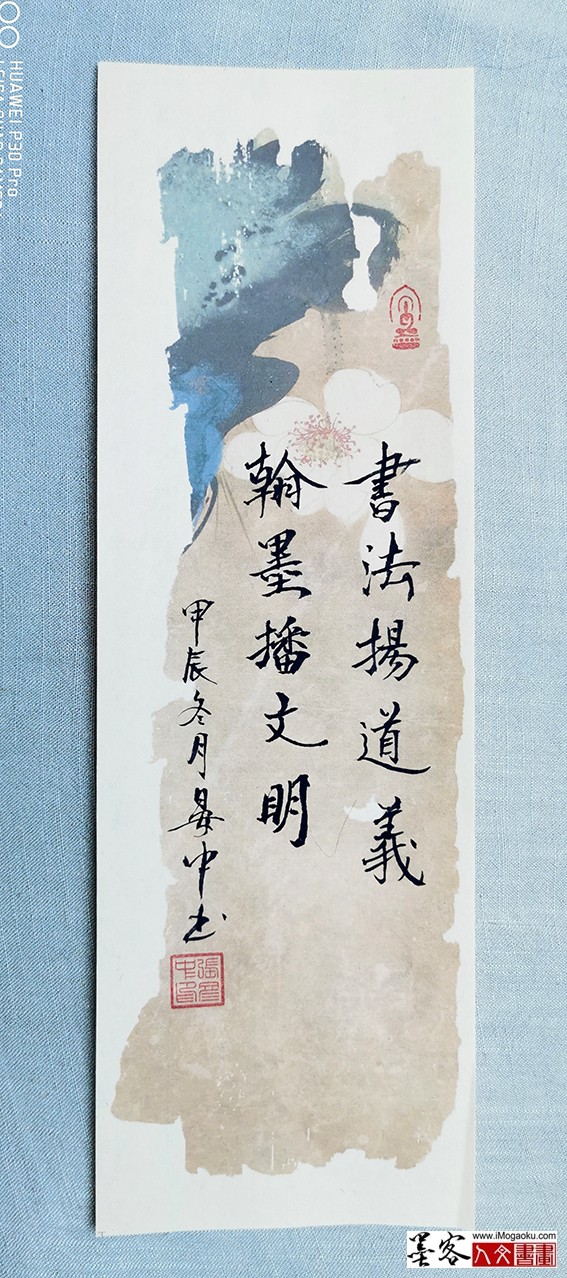 書法揚道義
翰墨播文明
甲辰冬月晏中书
HUAWEI P30 Pro
LEICA
www.iMogaoku.com
墨客人文書畫